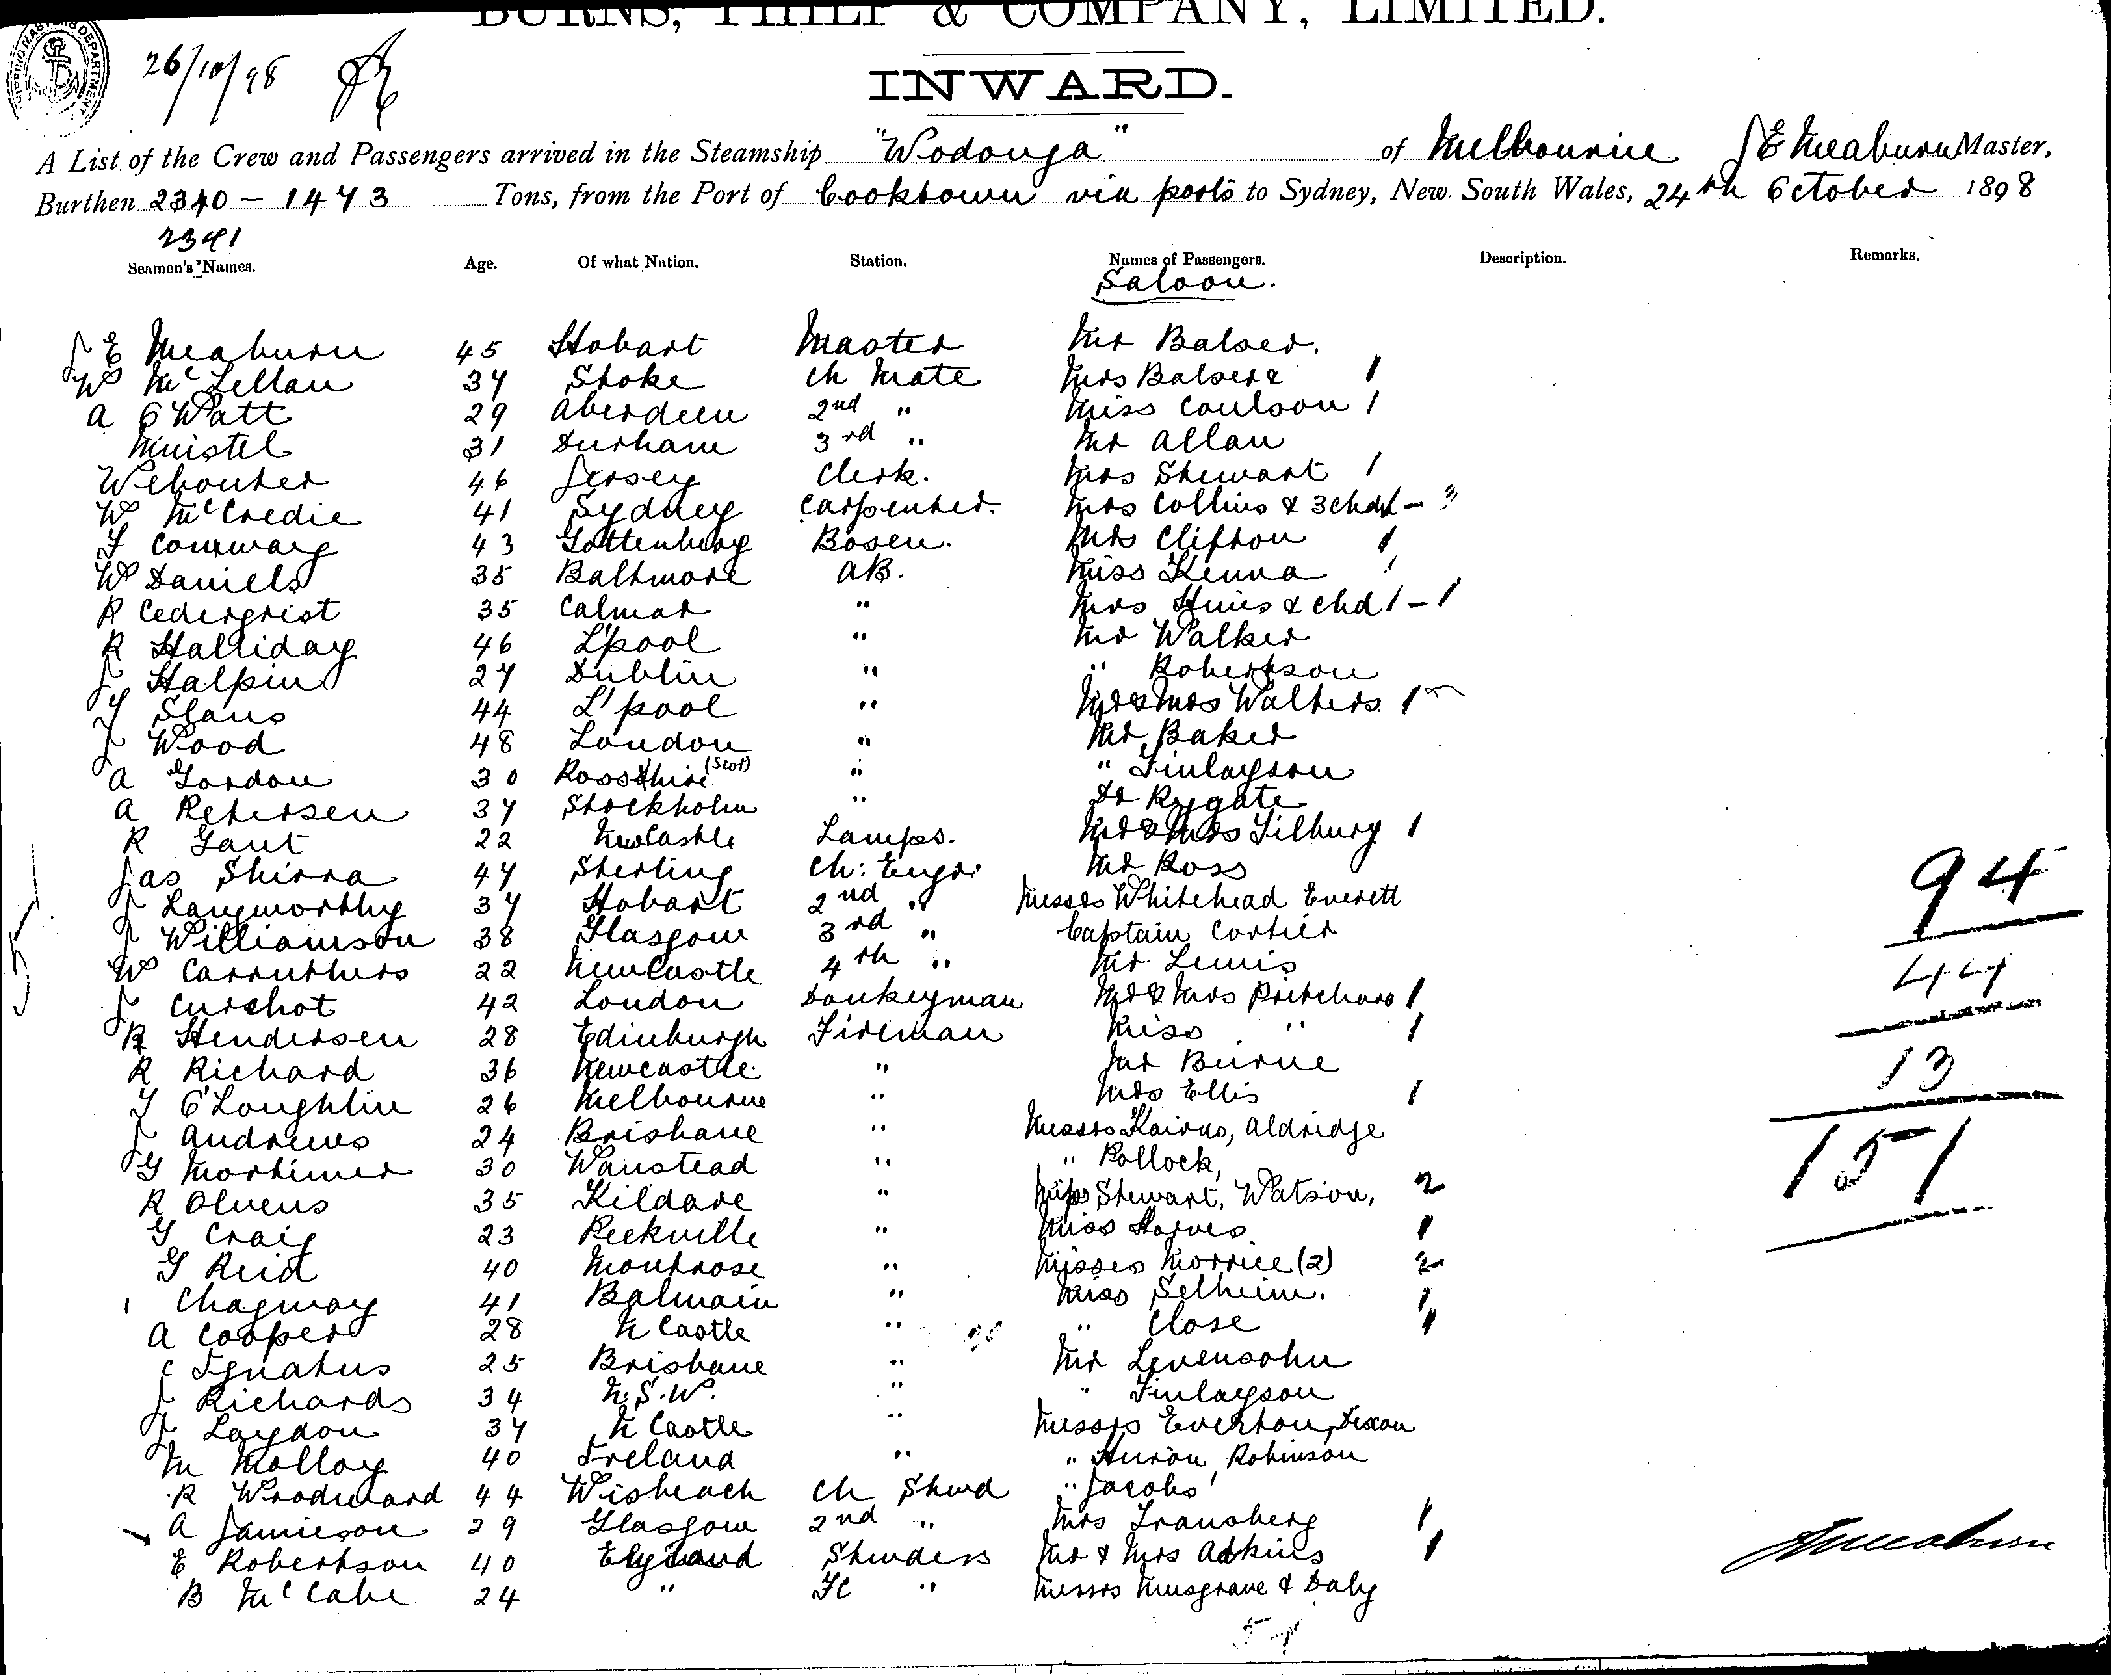 BURNS, PHILP & COMPANY, LIMITED.
26/10/98
INWARD.
A List of the Crew and Passengers arrived in the Steamship "Wodonga" of Melbourne J E Meaburn Master,
Burthen 2340 - 1473 Tons, from the Port of Cooktown via ports to Sydney, New South Wales, 24th October 1898
2341
Seamen's Names. Age. Of what Nation. Station. Names of Passengers. Description. Remarks.
Saloon.
J E Meaburn 45 Hobart Master Mr Balser.
W McLellan 37 Stoke Ch Mate Mrs Balser & 1
A O Watt 29 Aberdeen 2nd " Miss Coulson 1
Muistel 31 Durham 3rd " Mr Allan
Webouter 46 Jersey Clerk. Mrs Stewart 1
W McCredie 41 Sydney Carpenter. Mrs Collins & 3 chd 1 - 3
F Conwaig 43 Gottenburg Bosen. Mrs Clifton 1
W Daniels 35 Baltmore AB. Miss Kenna 1
R Cedergrist 35 Calmar " Mrs Hines & chd 1 - 1
R Halliday 46 L'pool " Mr Walker
J Halpin 27 Dublin " " Robertson
F Slans 44 L'pool " Mr & Mrs Walters 1
J Wood 48 London " Mr Baker
A Gordon 30 Rosshire (Scot) " " Finlayson
A Petersen 37 Stockholm " Dr Rygate
R Gant 22 Newcastle Lamps. Mr & Mrs Tilbury 1
Jas Shirra 47 Sterling Ch: Engr. Mr Ross
J Langworthy 37 Hobart 2nd " Messrs Whitehead Everett
J Williamson 38 Glasgow 3rd " Captain Cortier
W Carruthers 22 Newcastle 4th " Mr Lewis
J Curshot 42 London Donkeyman Mr & Mrs Pritchard 1
R Hendersen 28 Edinburgh Fireman Miss " 1
R Richard 36 Newcastle " Mr Burne
T O'Loughlin 26 Melbourne " Mrs Ellis 1
J Andrews 24 Brisbane " Messrs Kairns, Aldridge
G Mortimer 30 Wanstead " " Pollock,
R Olvens 35 Kildare " Miss Stewart, Watson, 2
G Craig 23 Peckville " Miss Harves 1
G Reid 40 Montrose " Misses Morrice (2) 2
Chagway 41 Balmain " Miss Selheim. 1
A Cooper 28 N Castle " " Close 1
C Ignatus 25 Brisbane " Mr Levensohn
J Richards 34 N.S.W. " " Finlayson
J Laydon 37 N Castle " Messrs Everton, Dixon
M Molloy 40 Ireland " " Huron, Robinson
R Woodward 44 Wisbeach Ch Stwd " Jacobs
A Jamieson 29 Glasgow 2nd " Mrs Transberg 1
E Robertson 40 England Stwdess Mr & Mrs Adkins 1
B McCabe 24 " FC " Messrs Musgrave & Daly
94
44
13
151